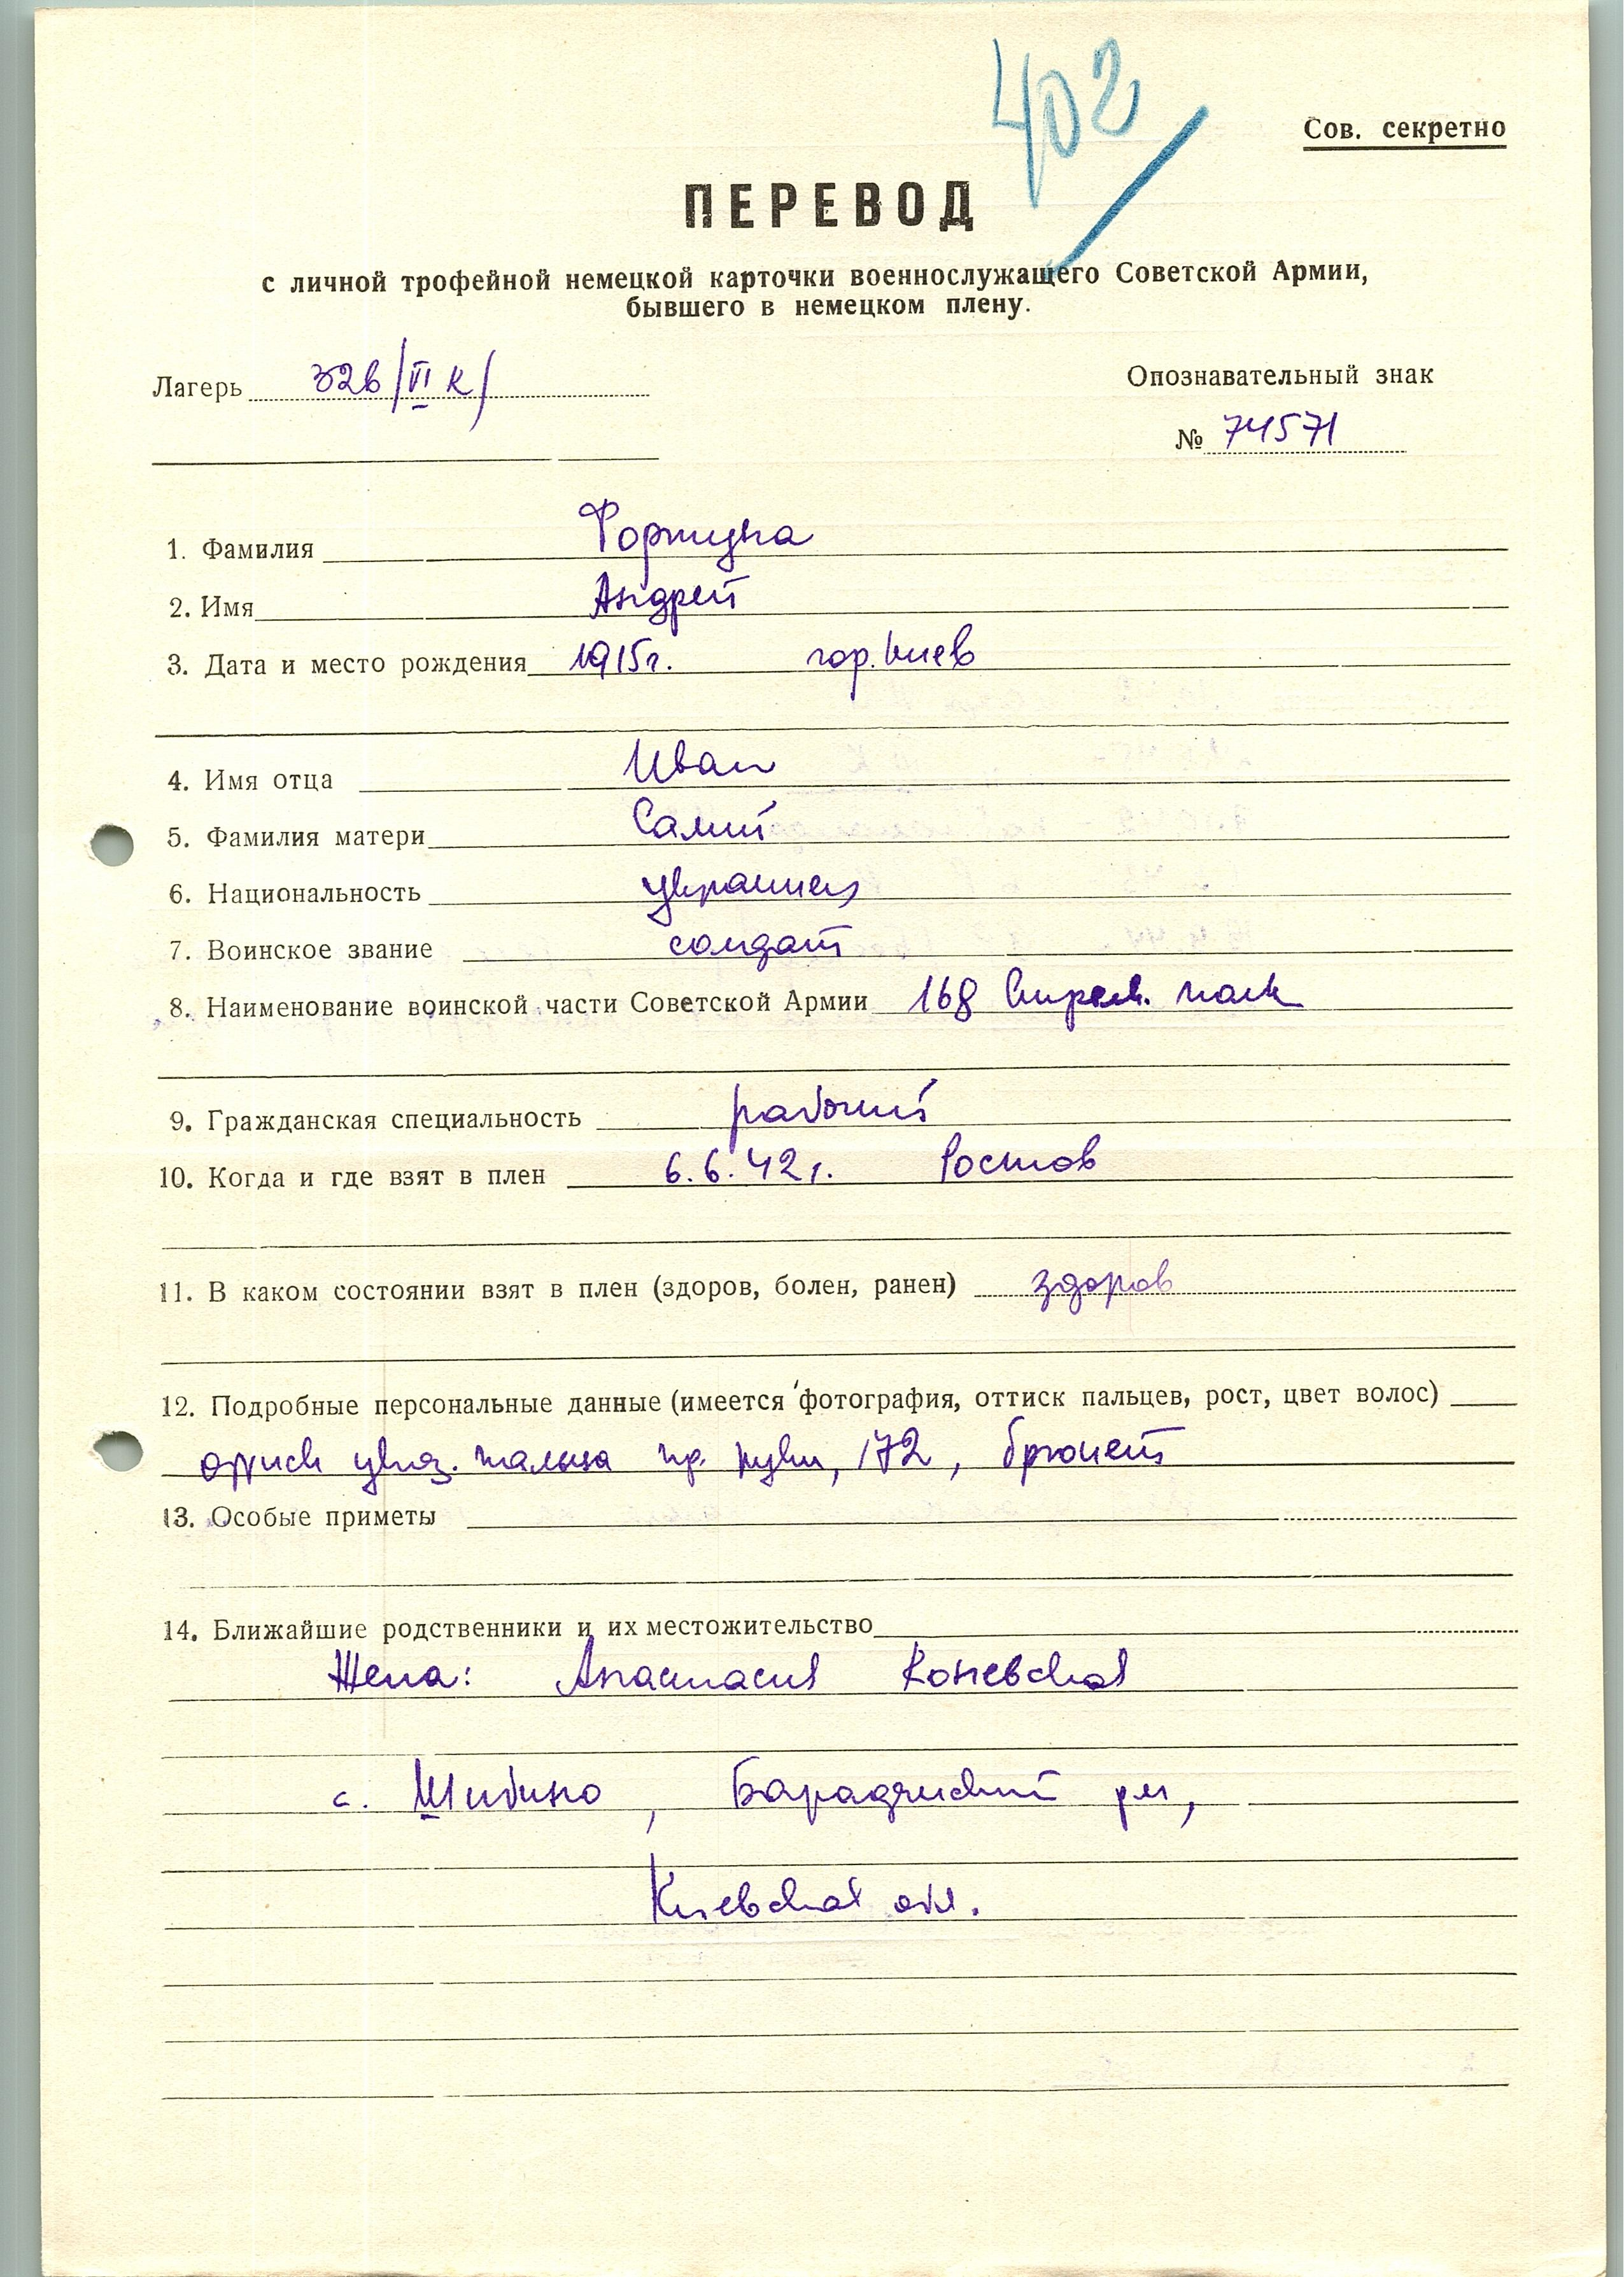 402
Сов. секретно
ПЕРЕВОД
с личной трофейной немецкой карточки военнослужащего Советской Армии,
бывшего в немецком плену.
Лагерь 326/VI К/
Опознавательный знак
№ 74571
1. Фамилия Фортуна
2. Имя Андрей
3. Дата и место рождения 1915г. гор. Киев
4. Имя отца Иван
5. Фамилия матери Салий
6. Национальность украинец
7. Воинское звание солдат
8. Наименование воинской части Советской Армии 168 Стрелк. полк
9. Гражданская специальность рабочий
10. Когда и где взят в плен 6.6.42г. Ростов
11. В каком состоянии взят в плен (здоров, болен, ранен) здоров
12. Подробные персональные данные (имеется фотография, оттиск пальцев, рост, цвет волос)
указ. пальца пр. руки, 172, брюнет
13. Особые приметы
14. Ближайшие родственники и их местожительство
Жена: Анастасия Коневская
с. Шибино, р-н,
Киевская обл.